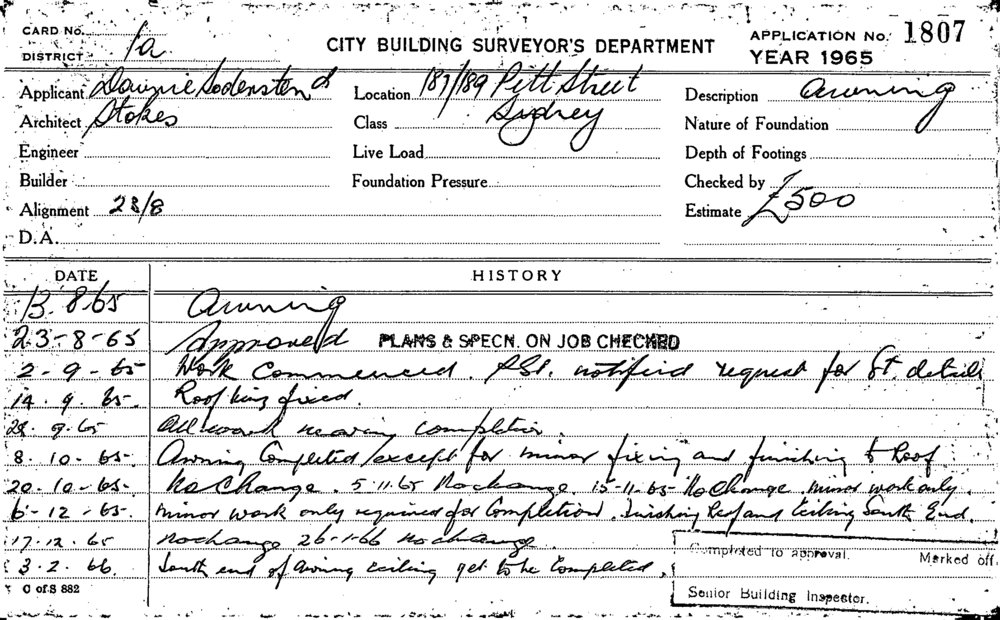 CARD No.
DISTRICT 1a
CITY BUILDING SURVEYOR'S DEPARTMENT
APPLICATION No. 1807
YEAR 1965
Applicant Downie Sodersten &
Architect Stokes
Engineer
Builder
Alignment 23/8
D.A.
Location 187/189 Pitt Street
Sydney
Class
Live Load
Foundation Pressure
Description Awning
Nature of Foundation
Depth of Footings
Checked by
Estimate £500
DATE HISTORY
13.8.65 Awning
23-8-65 Approved PLANS & SPECN. ON JOB CHECKED
2-9-65 Work Commenced. notified request for St. details
14.9.65. Roof fixed.
28.9.65 All work nearing completion.
8.10.65. Awning Completed except for minor fixing and finishing to Roof
20.10.65. No Change. 5.11.65 No change 15-11-65 No Change minor work only.
6-12-65. minor work only required for Completion. Finishing Roof and Ceiling South End.
17.12.65 no change 26-1-66 no change.
3.2.66. South end of Awning ceiling yet to be Completed.
Completed to approval. Marked off.
Senior Building Inspector.
C of S 882